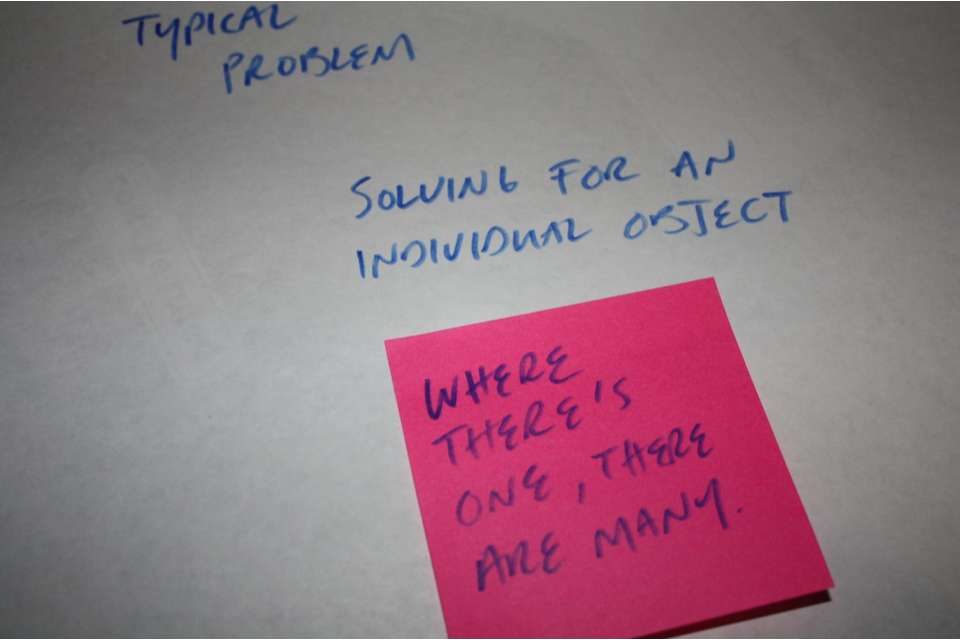 TYPICAL
PROBLEM
SOLVING FOR AN
INDIVIDUAL OBJECT
WHERE
THERE'S
ONE, THERE
ARE MANY.